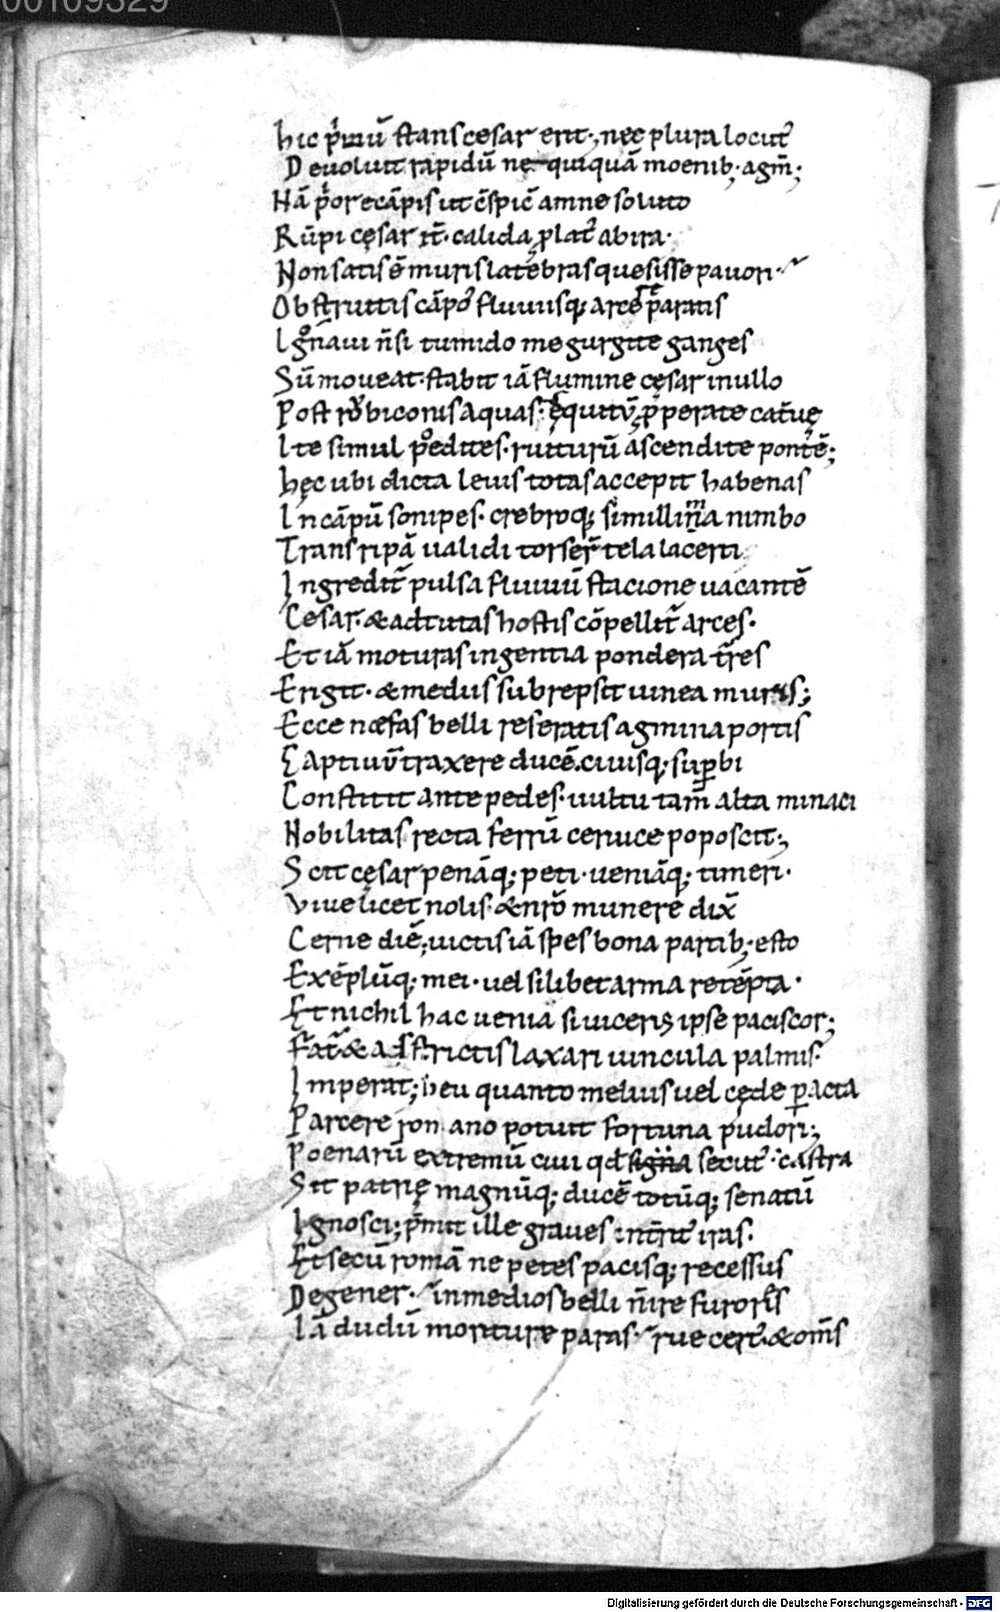 00109329
hic p̄mū stans cesar erit; nec plura locut᷒
Deuoluit rapidū ne quiquā moenib; agm̄;
Hā p̄or e cāpis ut c̄spic̄ amne soluto
Rūpi cęsar it̄. calida ꝓlat᷒ ab ira.
Non satis ē muris latebras quesisse pauori.
Obstruitis cāpos fluuiisq; arcere paratis
Ignaui n̄ si tumido me gurgite ganges
Sūmoueat. stabit iā flumine cęsar in ullo
Post rubiconis aquas. ęquitū ꝓperate cat̄uę
Ite simul pedites. ruiturū ascendite pontē;
hęc ubi dicta leuis totas accepit habenas
In cāpū sonipes. crebroq; simillima nimbo
Trans ripā ualidi torser̄ tela lacerti
Ingredit᷒ pulsa fluuiū stacione uacantē
Cesar. & ad tutas hostis cōpellit᷒ arces.
Et iā moturas ingentia pondera t̄res
Erigit. & mediis subrepsit uinea muris;
Ecce nefas belli reseratis agmina portis
Captiuū traxere ducē. ciuisq; suꝑbi
Constitit ante pedes. uultu tam̄ alta minaci
Nobilitas recta ferrū ceruice poposcit;
Scit cęsar penāq; peti. ueniāq; timeri.
Viue licet nolis. & nr̄o munere dix̄
Cerne diē; uictis iā spes bona partib; esto
Exēplūq; mei. uel si libet arma retēpta.
Et nichil hac uenia si uiceris ipse paciscor;
Fat᷒ & adstrictis laxari uincula palmis.
Imperat; heu quanto melius uel cęde ꝑacta
Parcere romano potuit fortuna pudori;
Poenarū extremū ciui qd̄ signa secut᷒ castra
Sit patrię magnūq; ducē totūq; senatū
Ignosci; p̄mit ille graues int̄rit᷒ iras.
Et secū romā ne petes pacisq; recessus
Degener. in medios belli n̄ ire furoris
Iā dudū moriture paras. rue cert᷒. & om̄s
Digitalisierung gefördert durch die Deutsche Forschungsgemeinschaft - DFG